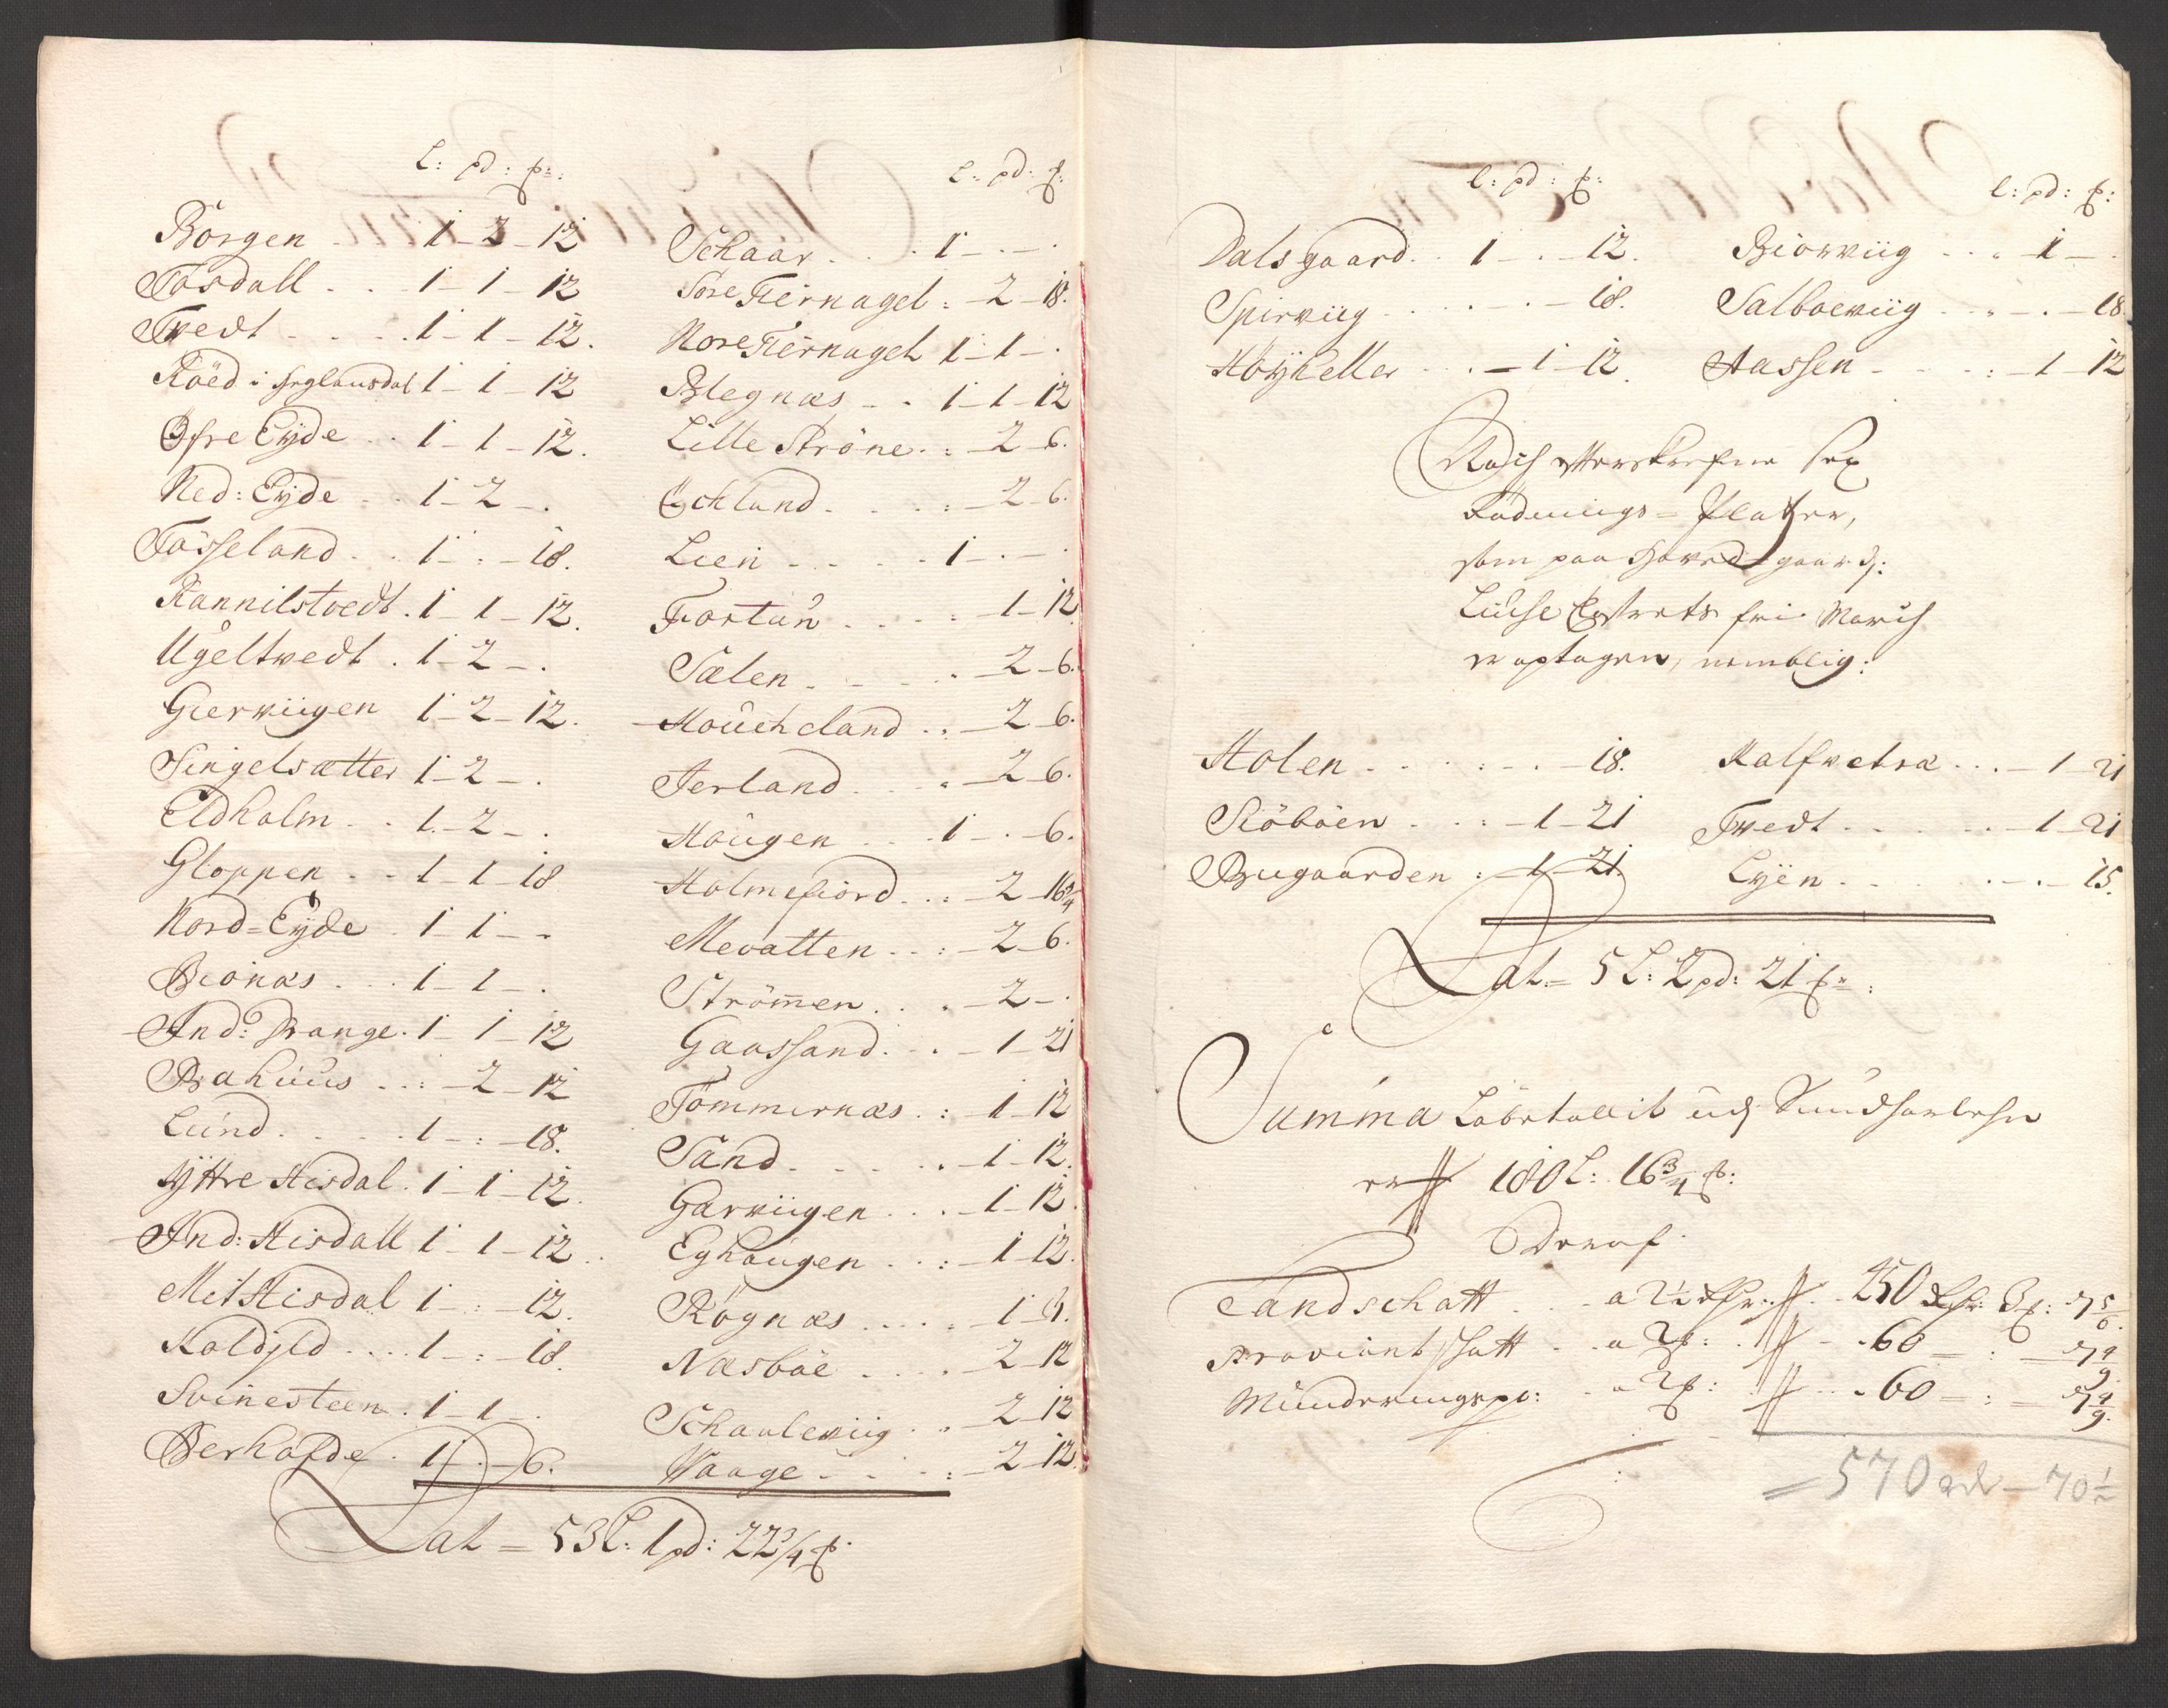 L: pd: ℔:
Borgen - 1-2-12
Tosdall - 1-1-12
Tvedt - 1-1-12.
Röed i 1-1-12
Öfre Eÿde 1-1-12.
Ned: Eÿde 1-2-.
Fosseland 1-:-18.
Rannilstvedt. 1-1-12.
Ugeltvedt. 1-2-.
Gierviigen 1-2-12.
Singelsætter 1-2-.
Eldholm 1-2-.
Gloppen 1-1-18
Nord=Eÿde 1-1-.
Bionæs 1-1-.
Ind: Drange. 1-1-12
Bahuus -2-12
Lund 1-:-18.
Ÿttre Hisdal. 1-1-12.
Ind: Hisdall 1-1-12.
Mit Hisdal 1-:-12.
Koldjld 1-:-18.
Svinesteen. 1-1-.
Berhofde. 1-.-6.
L: pd: ℔:
Schaar 1-.-.
Söre Fiernagel: -2-18.
Nore Fiernagel 1-1-.
Blegnæs 1-1-12
Lille Ströne. -2-6.
Echland -2-6.
Lien 1-.-.
Fortun -1-12
Sælen -2-6.
Houcheland -2-6.
Jerland -2-6.
Hougen 1-.-6.
Holmefiord -2-16¾
Mevatten -2-6.
Strömen -2-.
Gaassand -1-21
Tömmernæs -1-12
Sand -1-12.
Garviigen -1-12.
Eghougen -1-12.
Rögnæs -1-3.
Næsböe -2-12
Schauleviig -2-12
Waage -2-12.
Lat = 53 L: 1 pd: 22¾ ℔.
L: pd: ℔:
Dalsgaard 1-.-12.
Spirviig -.-18.
Höÿheller -1-12.
L: pd: ℔:
Biorviig 1-.
Salboeviig -.-18
Aassen -1-12
Noch effterskrefne sex
Rödnings=Pladtzer,
som paa hoved gaard:
Luse Closters frie March
er optagen, nemblig:
Holen -.-18.
Siöböen -1-21
Bugaarden -1-21.
Kalfvetræ -1-21
Tvedt -1-21
Lÿen -.-15.
Lat = 5 L: 2 pd: 21 ℔:
Summa Löbetallit udj Sundhorlehn
er 180 L: 16¾ ℔:
Deraf
Landschatt a 2½ 450
Proviant schatt a 60
Munderingsp: a 60
=570 rd - 70½